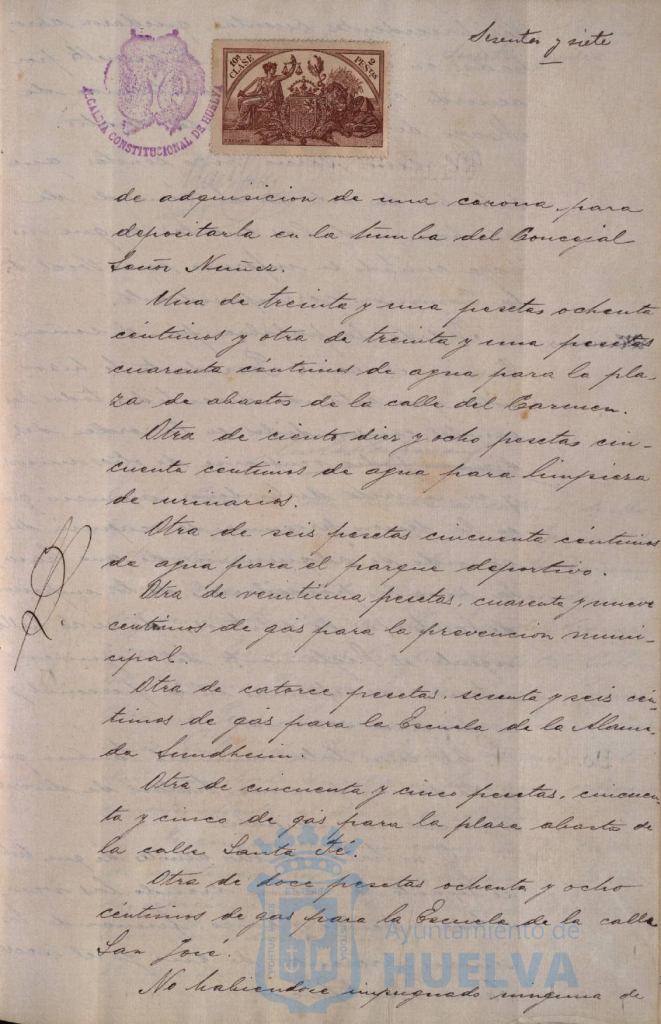 Sesenta y siete
ALCALDIA CONSTITUCIONAL DE HUELVA
10ª CLASE
2 PESETAS
de adquisicion de una corona para
depositarla en la tumba del Concejal
Señor Nuñez.
Una de treinta y una pesetas ochenta
céntimos y otra de treinta y una pesetas
cuarenta céntimos de agua para la pla-
za de abastos de la calle del Carmen.
Otra de ciento diez y ocho pesetas cin-
cuenta céntimos de agua para limpieza
de urinarios.
Otra de seis pesetas cincuenta céntimos
de agua para el parque deportivo.
Otra de veintiuna pesetas, cuarenta y nueve
céntimos de gas para la prevención muni-
cipal.
Otra de catorce pesetas, sesenta y seis cén-
timos de gas para la Escuela de la Alame-
da Sundheim.
Otra de cincuenta y cinco pesetas, cincuen-
ta y cinco de gas para la plaza abastos de
la calle Santa Fé.
Otra de doce pesetas ochenta y ocho
céntimos de gas para la Escuela de la calle
San José.
No habiendose impugnado ninguna de
Ayuntamiento de
HUELVA